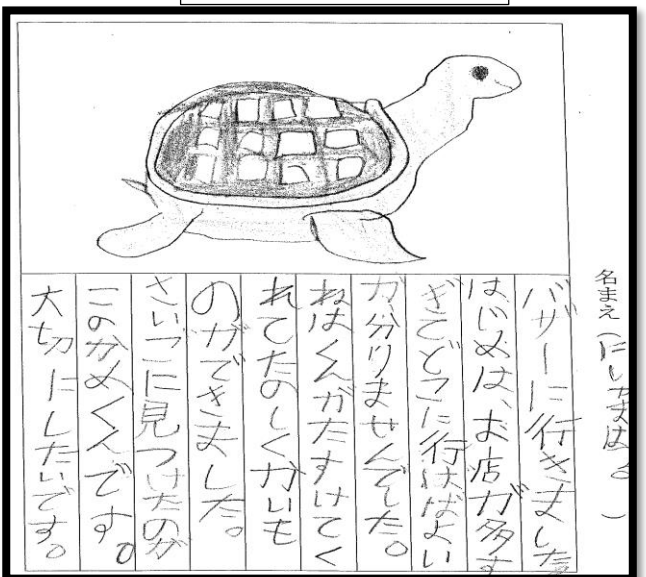 名まえ（にしやまはる）
バザーに行きました。
はじめは、お店が多す
ぎてどこに行けばよい
か分りませんでした。
ねはくんがたすけてく
れてたのしくかいも
のができました。
さいごに見つけたのが
このかめくんです。
大切にしたいです。